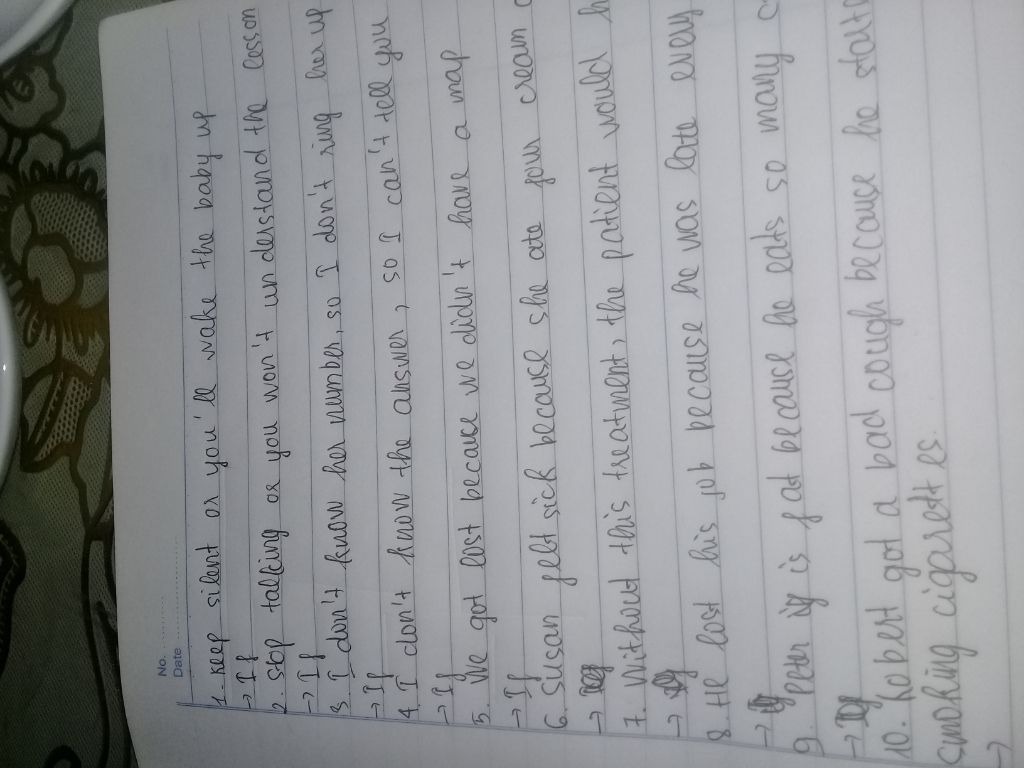 No. ............
Date ............
1. keep silent or you'll wake the baby up
→ If
2. Stop talking or you won't understand the lesson
→ If
3. I don't know her number, so I don't ring her up
→ If
4. I don't know the answer, so I can't tell you
→ If
5. We got lost because we didn't have a map
→ If
6. Susan felt sick because she ate four cream
→
7. Without this treatment, the patient would
→
8. He lost his job because he was late every
→
9. Peter is fat because he eats so many
→
10. Robert got a bad cough because he
smoking cigarettes.
→